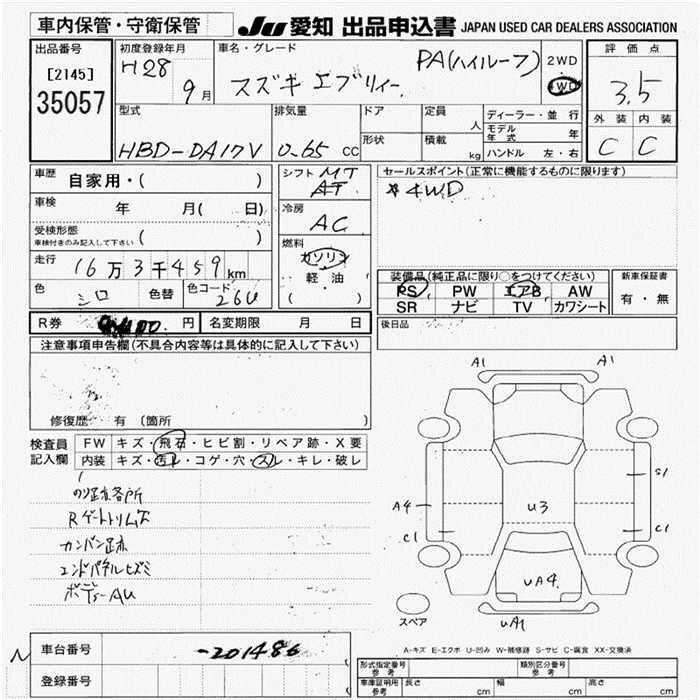 車内保管・守衛保管
JU 愛知 出品申込書 JAPAN USED CAR DEALERS ASSOCIATION
出品番号
[2145]
35057
初度登録年月
H28
9月
車名・グレード
スズキ エブリイ
PA(ハイルーフ)
2WD
4WD
評価点
3.5
外装 内装
C C
型式
HBD-DA17V
排気量
0-65 cc
ドア
形状
定員
人
積載
kg
ディーラー・並行
モデル年式 年
ハンドル 左・右
車歴
自家用・( )
車検
年 月( 日)
受検形態
車検付きのみ記入して下さい ( )
走行
16万3千459km
色
シロ
色替
色コード
26U
シフト MT
AT
冷房
AC
燃料
ガソリン
軽・油
( ・ )
セールスポイント(正常に機能するものに限ります)
*4WD
装備品(純正品に限り○をつけてください)
PS PW エアB AW
SR ナビ TV カワシート
新車保証書
有・無
後日品
R券
円
名変期限 月 日
注意事項申告欄(不具合内容等は具体的に記入して下さい)
修復歴 有 (箇所 )
検査員
記入欄
FW キズ・飛石・ヒビ割・リペア跡・X要
内装 キズ・汚レ・コゲ・穴・スレ・キレ・破レ
のり跡各所
Rゲートトリム欠
カンバン跡
エンドパネルヒズミ
ボディーAU
A1 A1
S1
A4
U3
C1 C1
UA4
スペア
UA1
A-キズ E-エクボ U-凹み W-補修跡 S-サビ C-腐食 XX-交換済
N
車台番号
-201486
登録番号
形式指定番号
参考
類別区分番号
参考
車庫証明用
参考
長さ cm 幅 cm 高さ cm